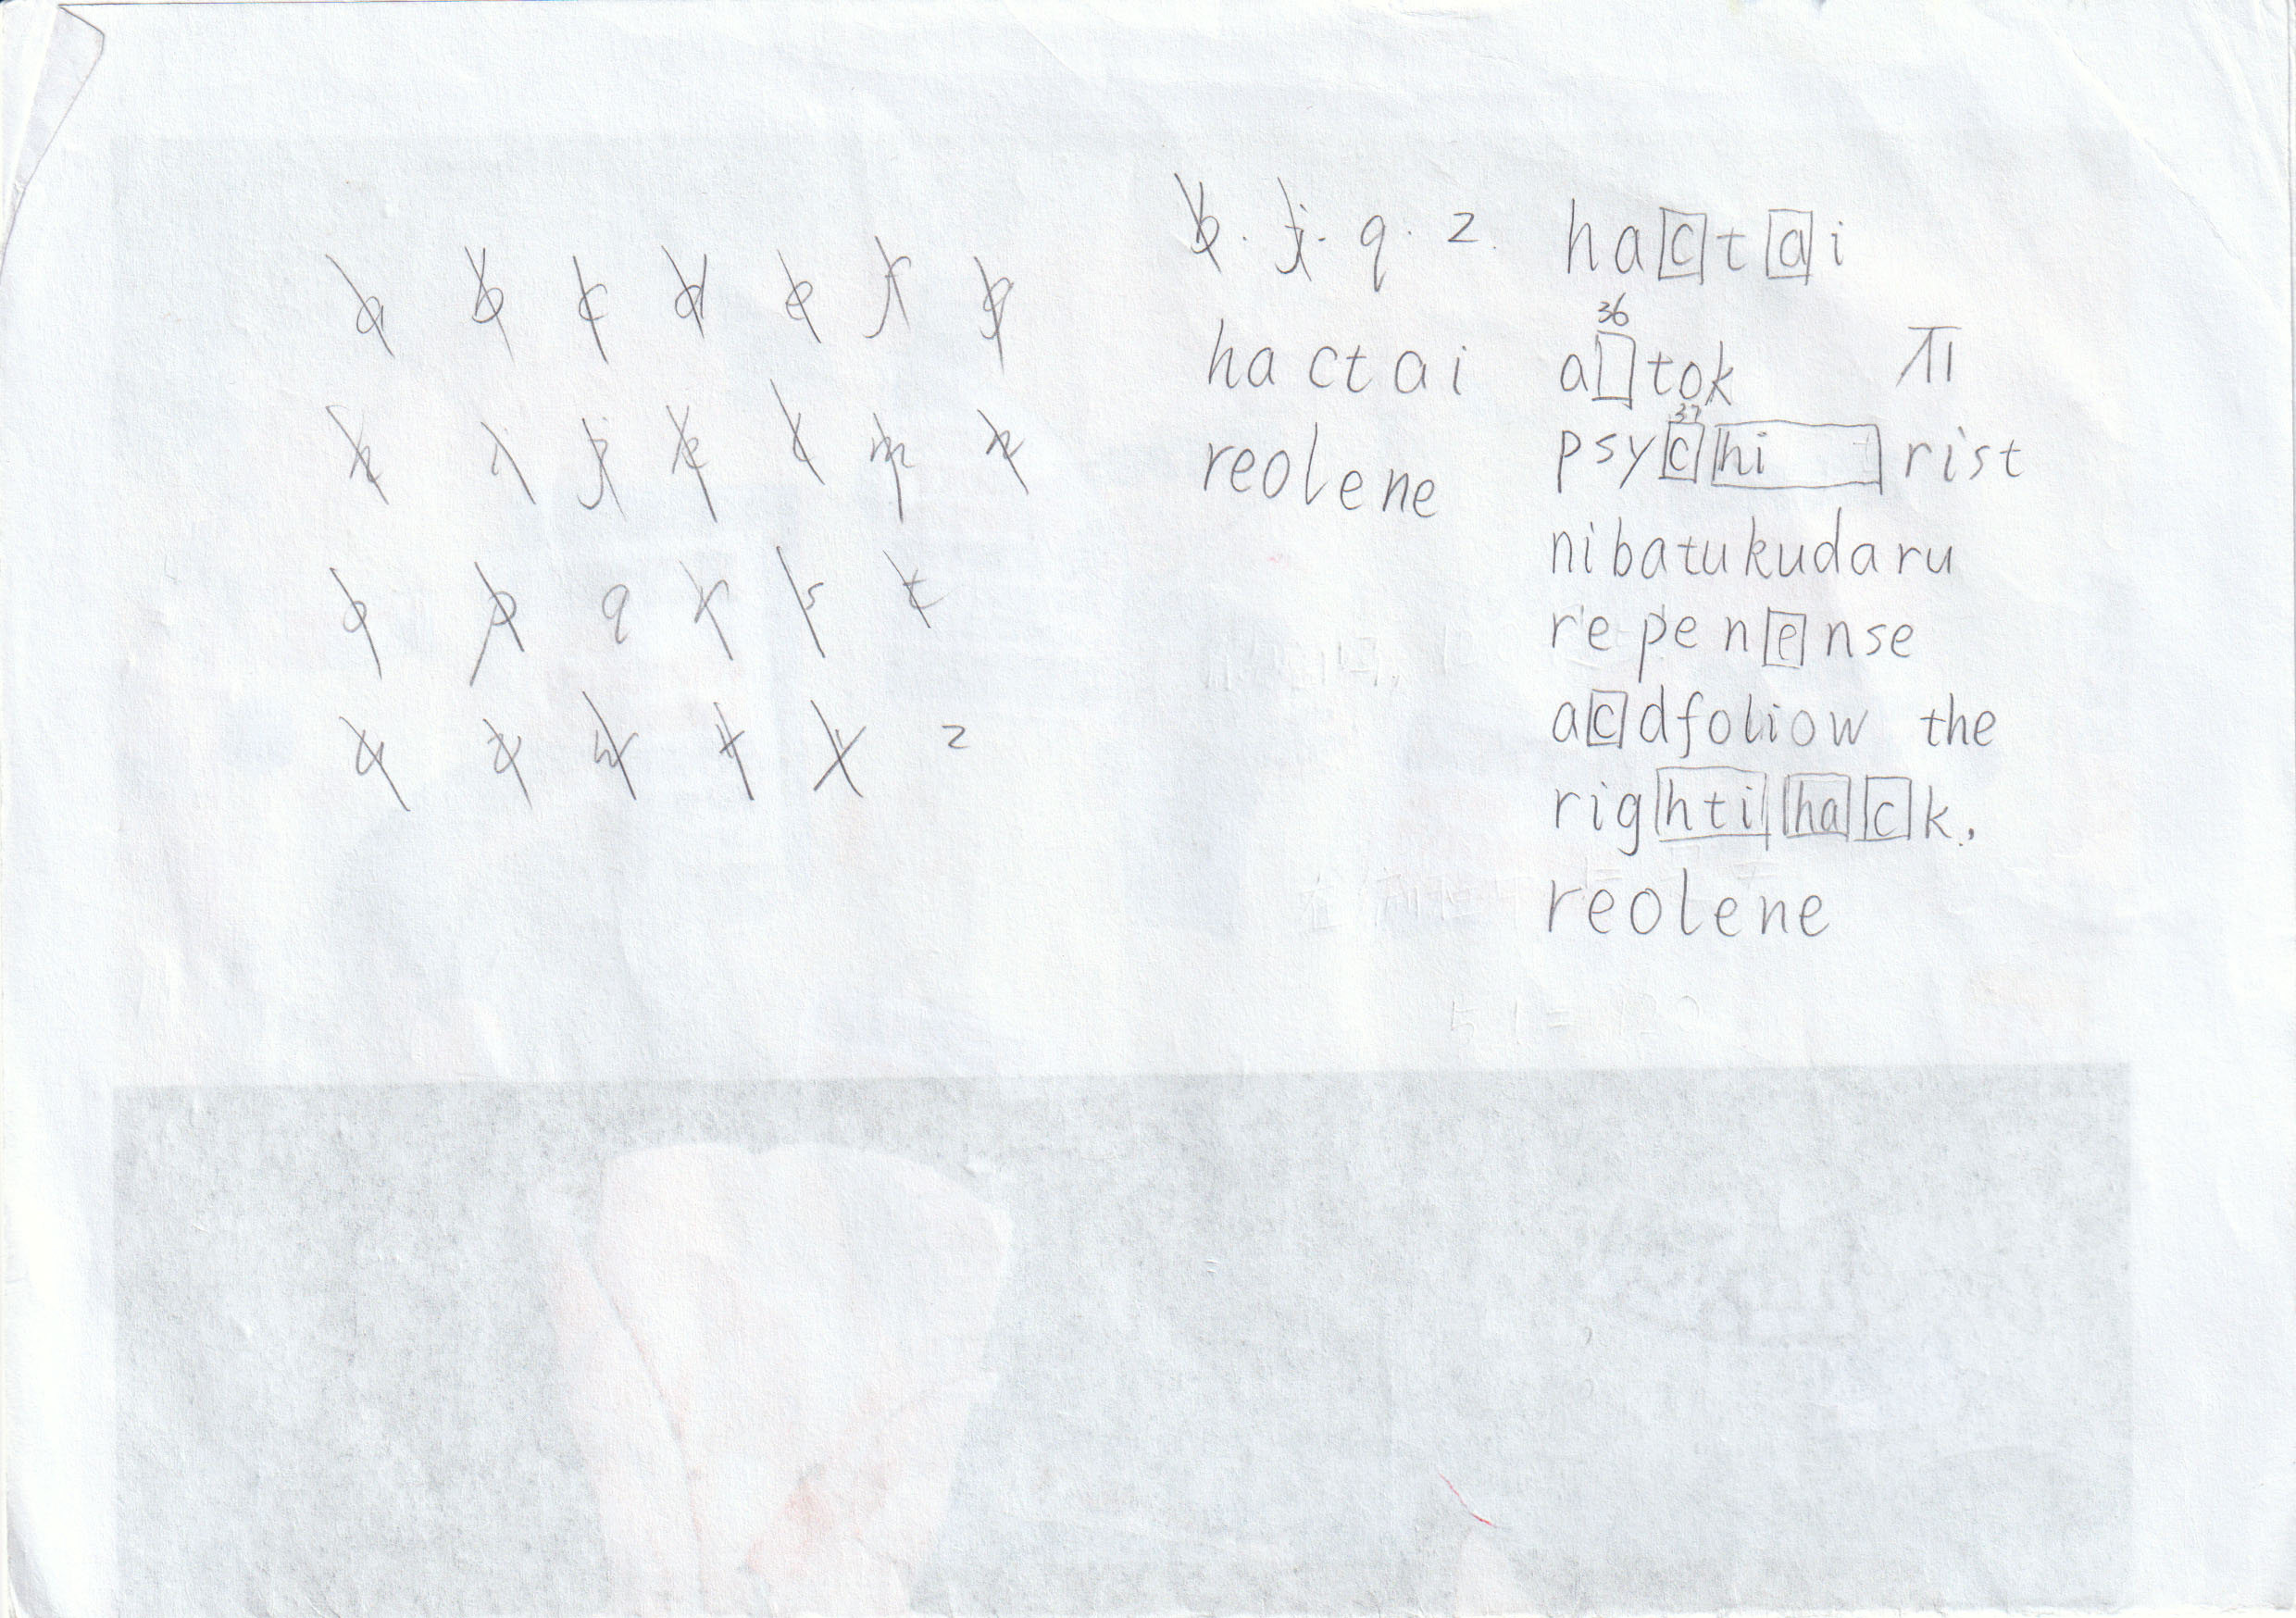 a b c d e f g
h i j k l m n
o p q r s t
u v w x y z
b. j. q. z.
hactai
reolene
hactai
36
a tok π
37
psychi rist
nibatukudaru
repenense
acdfoliow the
rightihack.
reolene